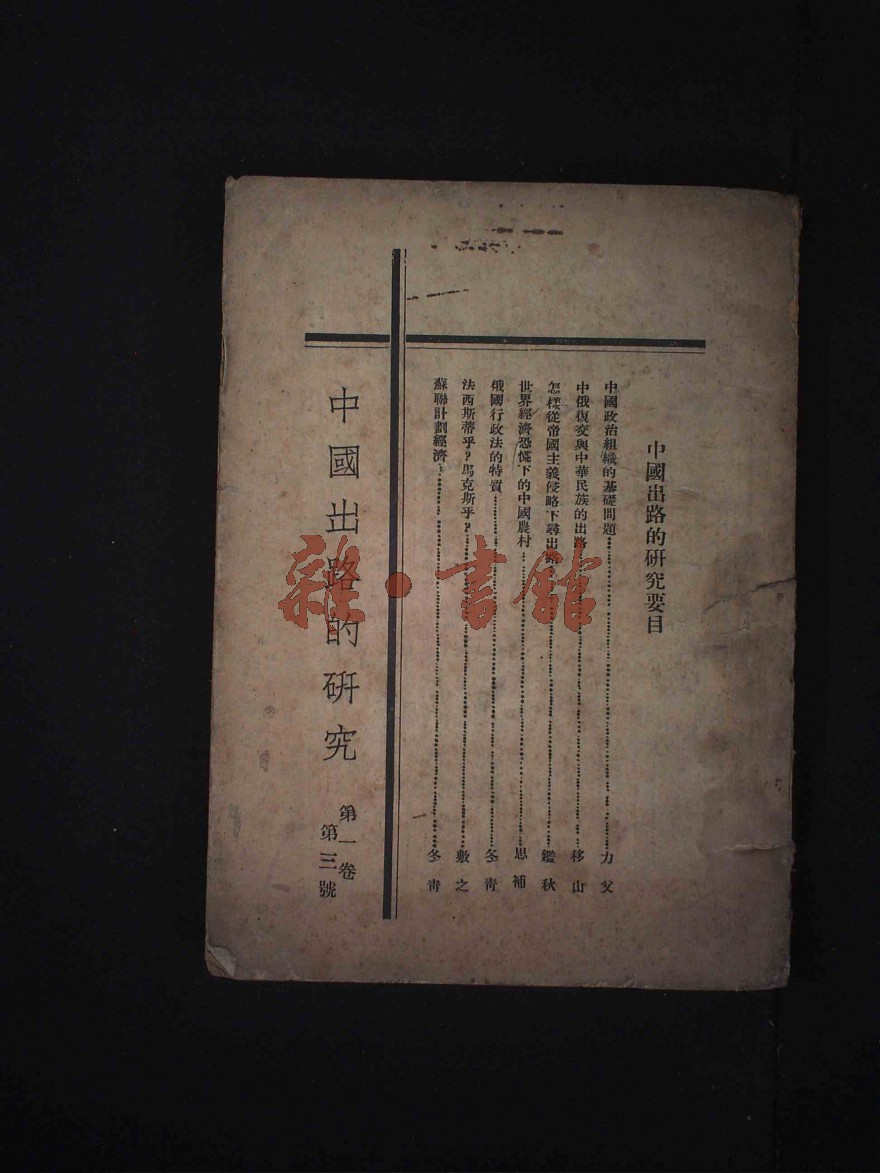 中國出路的研究要目
中國政治組織的基礎問題……力父
中俄復交與中華民族的出路……移山
怎樣從帝國主義侵略下尋出路……鑑秋
世界經濟恐慌下的中國農村……思補
俄國行政法的特質……冬青
法西斯蒂乎?馬克斯乎?……敷之
蘇聯計劃經濟……冬青
中國出路的研究
第一卷
第三號
雜·書館